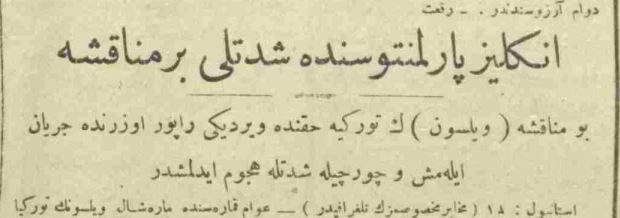 دوام آرزوسندندر . ـ رفعت
انكليز پارلمنتوسنده شدتلى بر مناقشه
بو مناقشه ( ويلسون ) ك توركيه حقنده ويرديكى راپور اوزرنده جريان
ايله‌مش و چورچيله شدتله هجوم ايدلمشدر
استانبول : ١٨ ( مخابر مخصوصمزك تلغرافيدر ) — عوام قماره‌سنده ماره‌شال ويلسونك توركيا